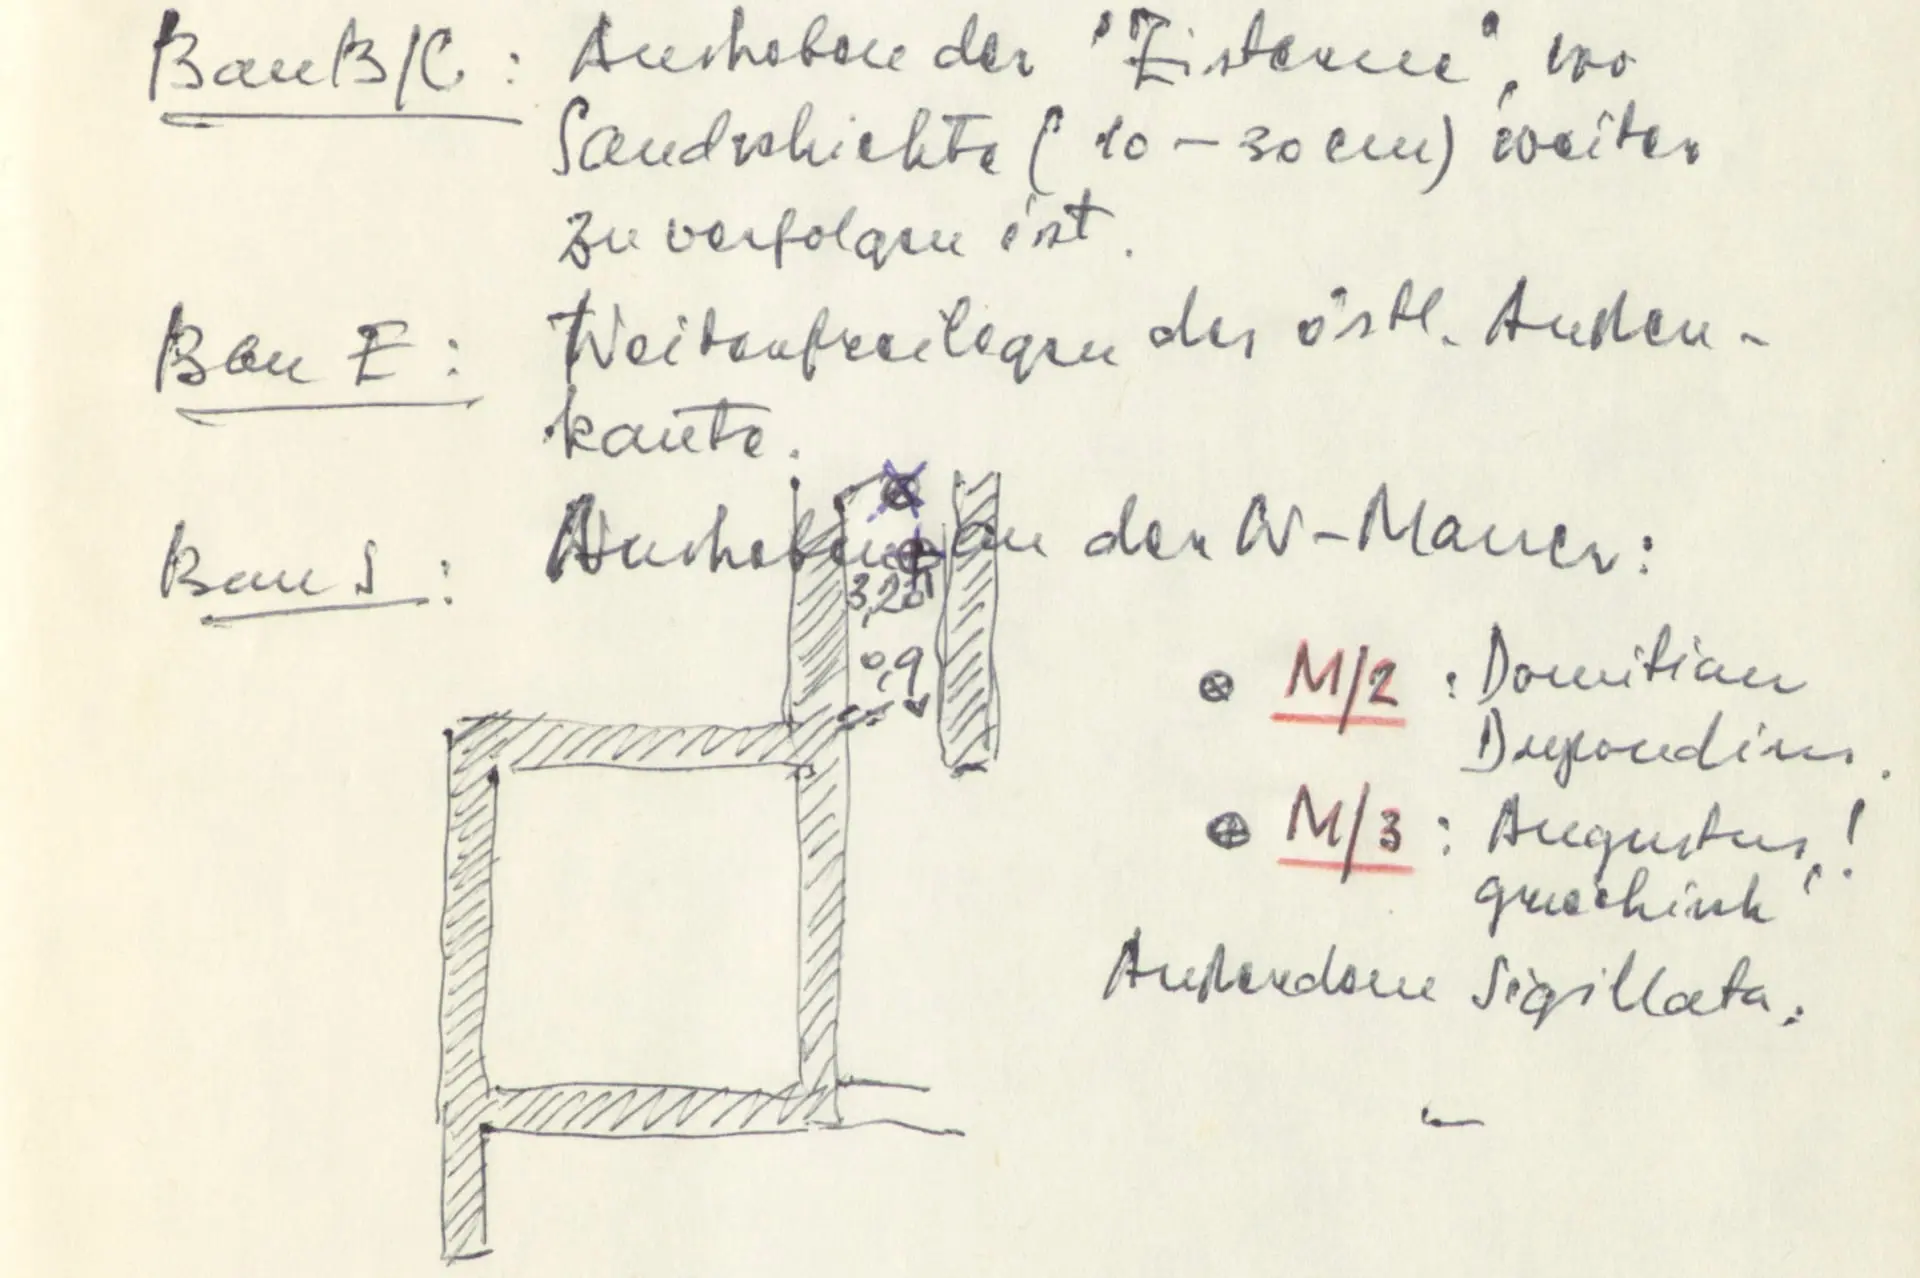 Bau B/C: Ausheben der "Zisterne", wo
Sandschichte (10-30cm) weiter
zu verfolgen ist.
Bau E: Weiterfreilegen der östl. Außen-
kante.
Bau S: Ausheben an der W-Mauer:
3,20
0,9
⊗ M/2: Domitian
Dupondius.
⊕ M/3: Augustus,!
griechisch
Außerdem Sigillata.